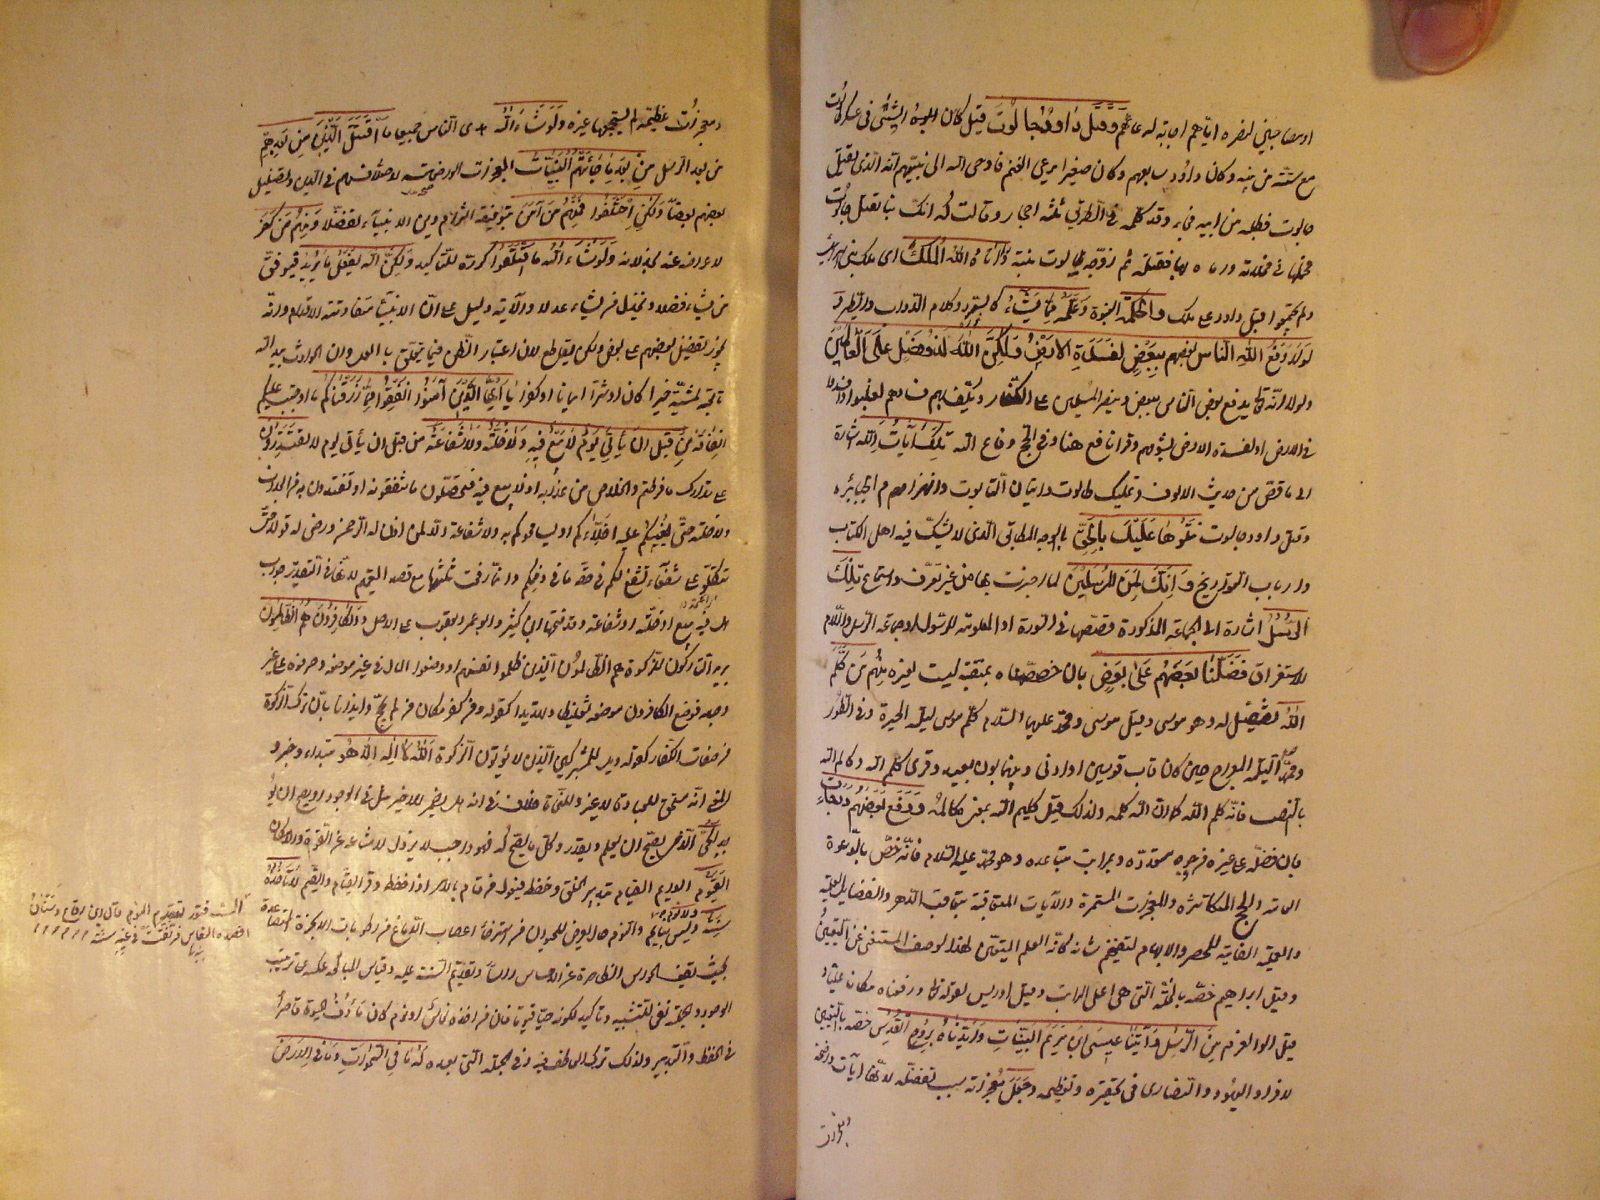 او مصاحبين لنصره اياهم اجابة لدعائهم وقتل داود جالوت قيل كان ايشا فى عسكر طالوت
مع ستة من بنيه وكان داود سابعهم وكان صغيرا يرعى الغنم فاوحى الله الى نبيهم انه الذى يقتل
جالوت فطلبه من ابيه فجاء وقد كلمه فى الطريق ثلثة احجار وقالت له انك بنا تقتل جالوت
فحملها فى مخلاته ورماه بها فقتله ثم زوجه طالوت بنته وآتاه الله الملك اى ملك بنى اسرائيل
ولم يجتمعوا قبل داود على ملك والحكمة النبوة وعلمه مما يشاء كالسرد وكلام الدواب والطير و
لولا دفع الله الناس بعضهم ببعض لفسدت الارض ولكن الله ذو فضل على العالمين
ولولا انه تعالى يدفع بعض الناس ببعض وينصر المسلمين على الكفار ويكف بهم فسادهم لغلبوا وافسدوا
فى الارض او لفسدت الارض بشؤمهم وقرأ نافع هنا وفى الحج دفاع الله تلك آيات الله اشارة
الى ما قص من حديث الالوف وتمليك طالوت واتيان التابوت وانهزام الجبابرة
وقتل داود جالوت نتلوها عليك بالحق بالوجه المطابق الذى لا يشك فيه اهل الكتاب
وارباب التواريخ وانك لمن المرسلين لما اخبرت بها من غير تعرف واستماع تلك
الرسل اشارة الى الجماعة المذكورة قصصها فى السورة او المعلومة للرسول او جماعة الرسل واللام
للاستغراق فضلنا بعضهم على بعض بان خصصناه بمنقبة ليست لغيره منهم من كلم
الله تفضيل له وهو موسى وقيل موسى ومحمد عليهما السلام كلم موسى ليلة الحيرة وفى الطور
ومحمدا ليلة المعراج حين كان قاب قوسين او ادنى وبينهما بون بعيد وقرئ كلم الله وكالم الله
بالنصب فانه كلم الله كما ان الله كلمه ولذلك قيل كليم الله بمعنى مكالمه ورفع بعضهم درجات
بان فضله على غيره من وجوه متعددة وبمراتب متباعدة وهو محمد عليه السلام فانه خص بالدعوة
العامة والحجج المتكاثرة والمعجزات المستمرة والآيات المتعاقبة بتعاقب الدهر والفضائل العلمية
والعملية الفائتة للحصر والابهام لتفخيم شانه كانه العلم المتعين لهذا الوصف المستغنى عن التعيين
وقيل ابراهيم خصه بالخلة التى هى اعلى المراتب وقيل ادريس لقوله تعالى ورفعناه مكانا عليا و
قيل اولو العزم من الرسل وآتينا عيسى ابن مريم البينات وايدناه بروح القدس خصه بالتعيين
لافراط اليهود والنصارى فى تحقيره وتعظيمه وجعل معجزاته سبب تفضيله لانها آيات واضحة
ومعجزات
ومعجزات عظيمة لم يستجمعها غيره ولو شاء الله هدى الناس جميعا ما اقتتل الذين من بعدهم
من بعد الرسل من بعد ما جاءتهم البينات المعجزات الواضحة لاختلافهم فى الدين وتضليل
بعضهم بعضا ولكن اختلفوا فمنهم من آمن بتوفيقه التزام دين الانبياء تفضلا ومنهم من كفر
لاعراضه عنه بخذلانه ولو شاء الله ما اقتتلوا كرره للتاكيد ولكن الله يفعل ما يريد فيوفق
من يشاء فضلا ويخذل من يشاء عدلا والآية دليل على ان الانبياء متفاوتة الاقدام وانه
يجوز تفضيل بعضهم على بعض ولكن بقاطع لان اعتبار الظن فيما يتعلق بالعمل وان الحوادث بيد الله
تابعة لمشيته خيرا كان او شرا ايمانا او كفرا يا ايها الذين آمنوا انفقوا مما رزقناكم ما اوجبت عليكم
انفاقه من قبل ان يأتى يوم لا بيع فيه ولا خلة ولا شفاعة من قبل ان يأتى يوم لا تقدرون
على تدارك ما فرطتم والخلاص من عذابه اذ لا بيع فيه فتحصلون ما تنفقونه او تفتدون به من العذاب
ولا خلة حتى يعينكم عليه اخلاؤكم او يسامحوكم به ولا شفاعة الا لمن اذن له الرحمن ورضى له قولا حتى
تتكلوا على شفعاء تشفع لكم فى حط ما فى ذممكم وانما رفعت ثلثتها مع قصد التعميم لانها فى التقدير جواب
هل فيه بيع او خلة او شفاعة وقد فتحها ابن كثير وابو عمرو ويعقوب على الاصل والكافرون هم الظالمون
يريد التاركون للزكوة هم الظالمون الذين ظلموا انفسهم او وضعوا المال فى غير موضعه وصرفوه على غير
وجهه فوضع الكافرون موضعه تغليظا وتهديدا كقوله ومن كفر مكان من لم يحج وايذانا بان ترك الزكوة
من صفات الكفار كقوله وويل للمشركين الذين لا يؤتون الزكوة الله لا اله الا هو مبتداء وخبر و
المعنى انه مستحق للعبادة لا غير وللنحاة خلاف فى انه هل يضمر للا خبر مثل فى الوجود او يصح ان يو
جد الحى الذى يصح ان يعلم ويقدر وكل ما يصح له فهو واجب لا يزول لامتناعه عن القوة والامكان
القيوم الدائم القيام بتدبير الخلق وحفظه فيعول من قام بالامر اذا حفظه وقرئ القيام والقيم لا تأخذه
سنة ولا نوم والنوم حال يعرض للحيوان من استرخاء اعصاب الدماغ من رطوبات الابخرة المتصاعدة
بحيث يقف الحواس الظاهرة عن الاحساس رأسا وتقديم السنة عليه وقياس المبالغة عكسه على ترتيب
الوجود والجملة نفى للتشبيه وتاكيد لكونه حيا قيوما فان من اخذه نعاس او نوم كان مأوف الحيوة قاصرا
فى الحفظ والتدبير ولذلك ترك العاطف فيه وفى الجملة التى بعده له ما فى السموات وما فى الارض
السنة فتور يتقدم النوم قال ابن رقاع وسنان
اقصده النعاس فرنقت فى عينه سنة